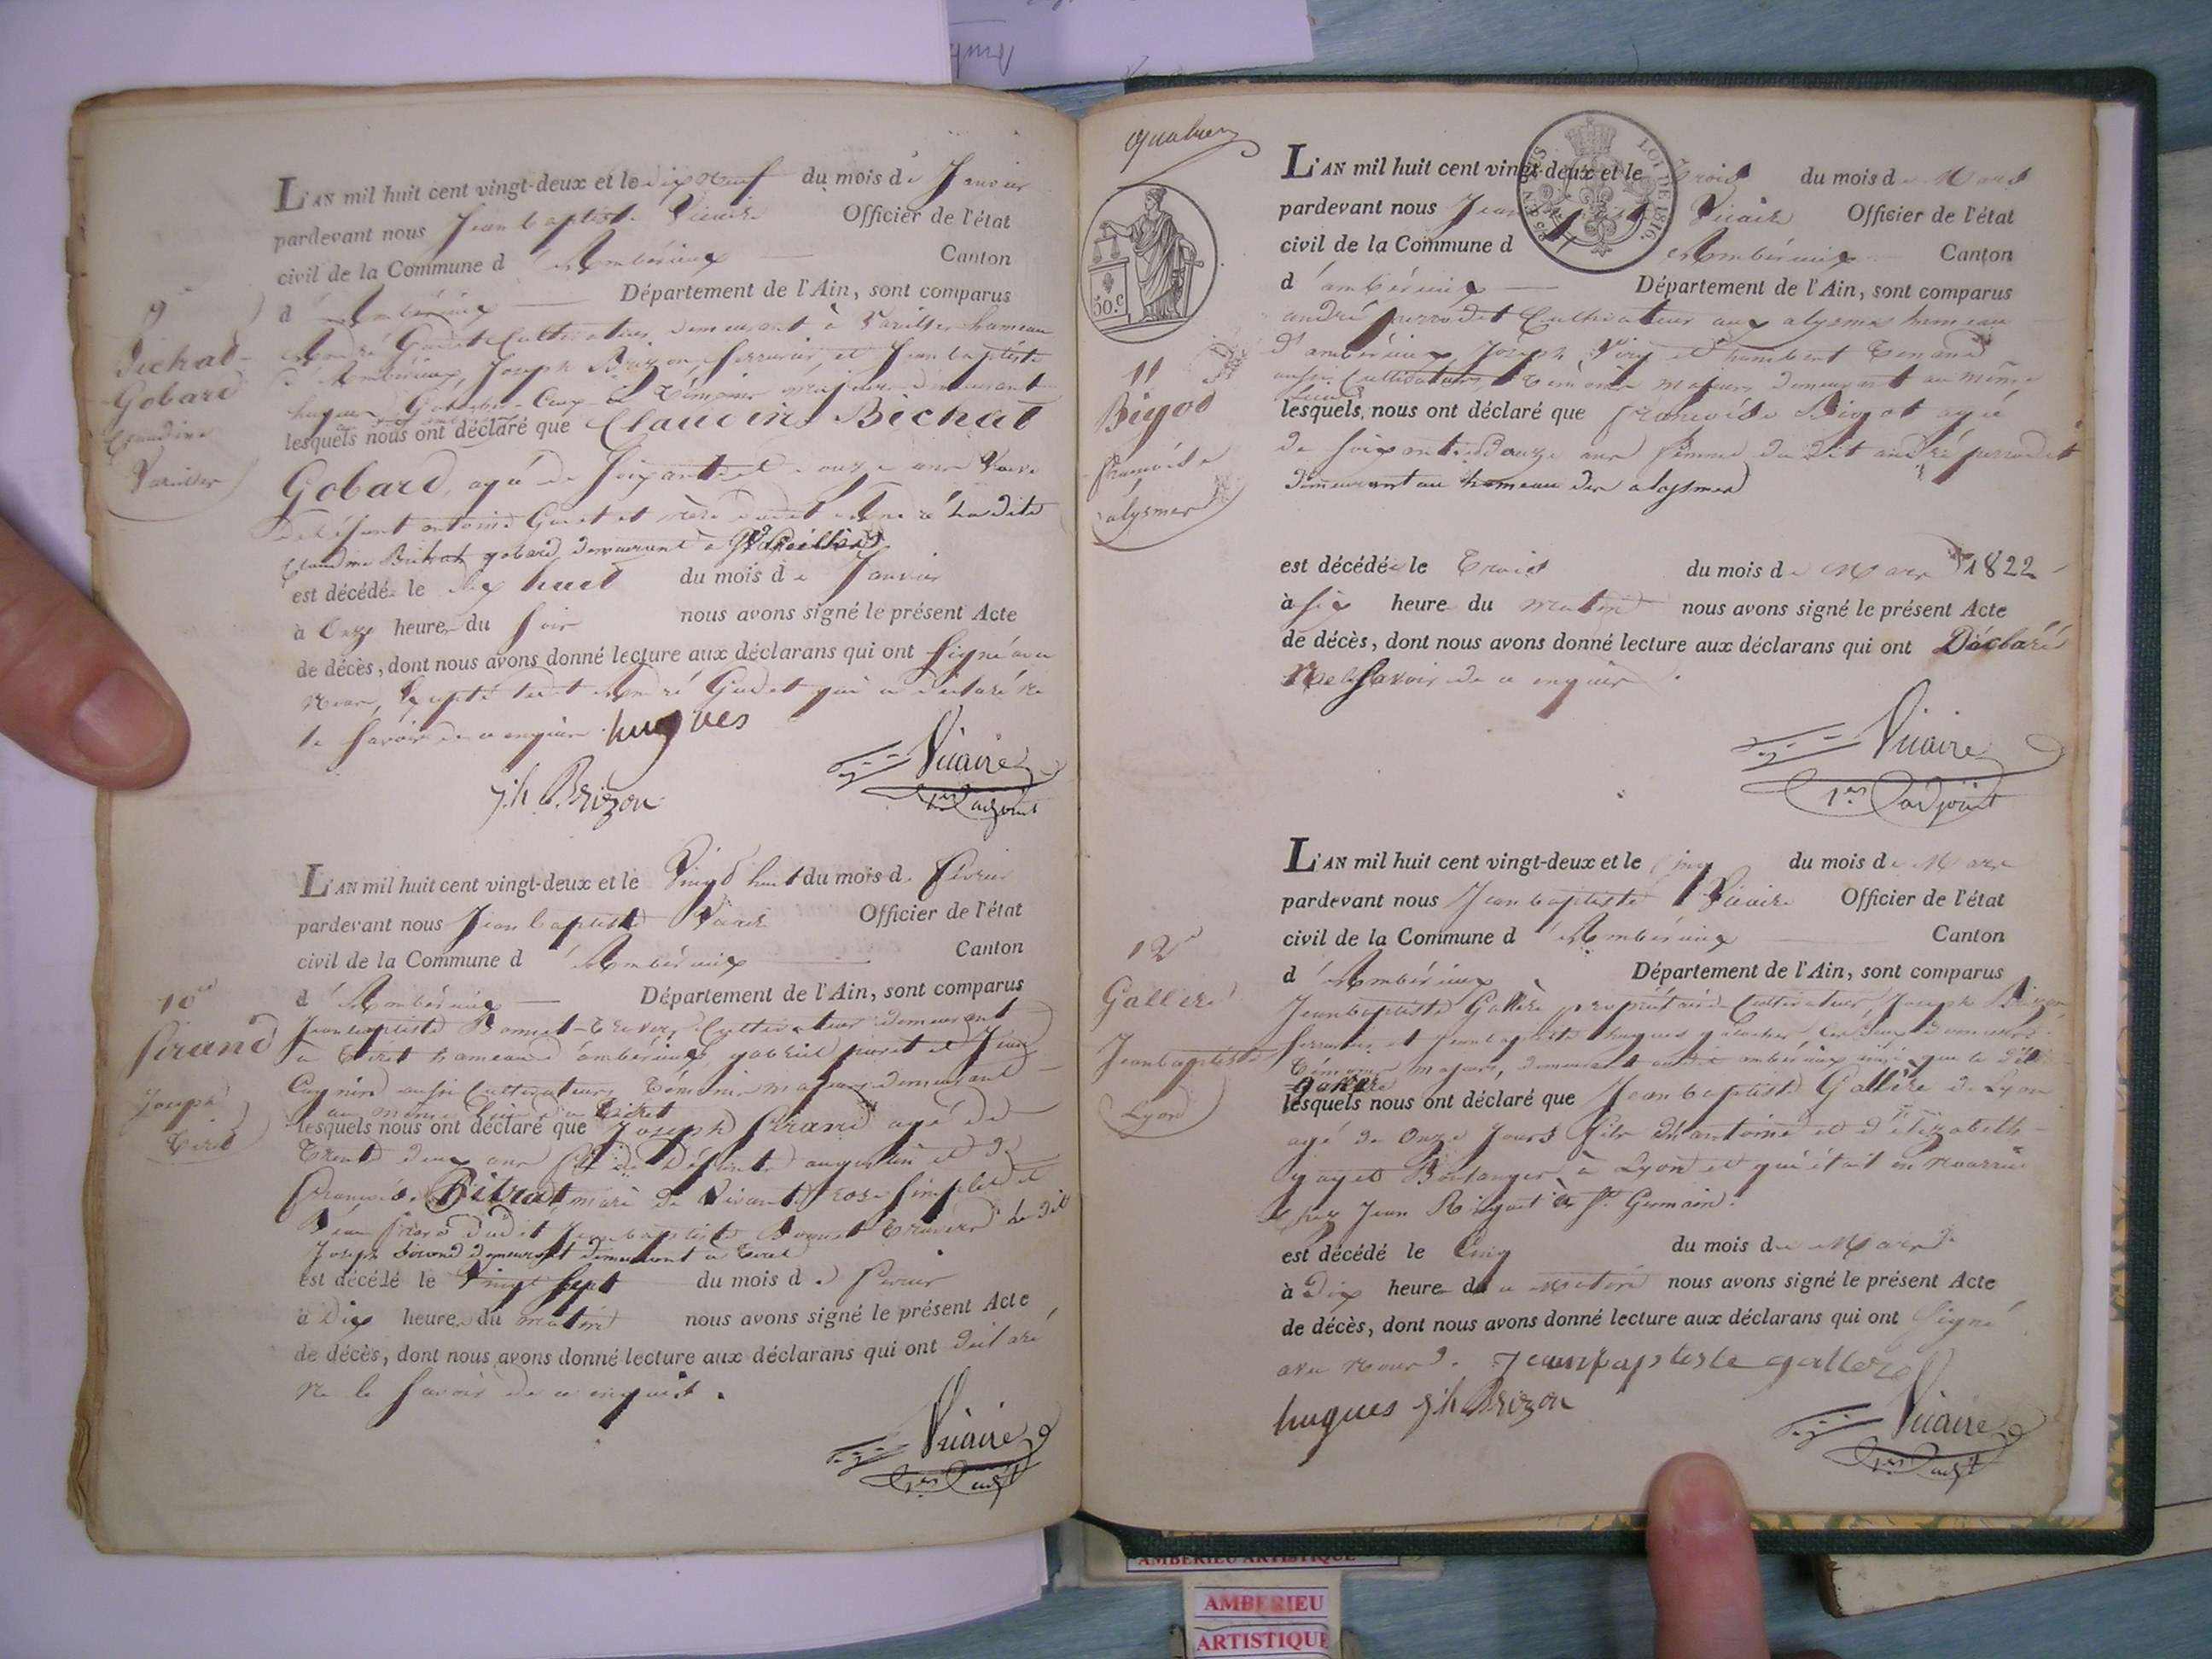 L'AN mil huit cent vingt-deux et le dix neuf du mois de Janvier
pardevant nous Jean baptiste Vicaire Officier de l'état
civil de la Commune d'Ambérieux Canton
d'Ambérieux Département de l'Ain, sont comparus
André Gudet Cultivateur demeurant à Vareilles hameau
d'Ambérieux, Joseph Brizon, serrurier, et Jean baptiste
hugues témoins majeurs demeurant
lesquels nous ont déclaré que Claudine Bichat
Gobard, agé de soixante et onze ans Veuve
de défunt antoine Gudet et mère dudit andré la dite
Claudine Bichat gobard demeurant à Vareilles
est décédée le dix huit du mois de Janvier
à Onze heures du soir nous avons signé le présent Acte
de décès, dont nous avons donné lecture aux déclarans qui ont signé avec
Nous, excepté ledit André Gudet qui a déclaré ne
le savoir de ce enquis. hugues
jh Brizon
Vicaire
1er adjoint
9e
Bichat
Gobard
Claudine
Vareilles
L'AN mil huit cent vingt-deux et le Vingt huit du mois de février
pardevant nous Jean baptiste Vicaire Officier de l'état
civil de la Commune d'Ambérieux Canton
d'Ambérieux Département de l'Ain, sont comparus
Jeanbaptiste Bonnet-Truver Cultivateur demeurant
à Tiret hameau d'ambérieux, gabriel et Jean
aussi Cultivateurs, témoins majeurs demeurant
au même lieu de Tiret
lesquels nous ont déclaré que Joseph Sirand agé de
trente deux ans fils de défunt augustin et de
françoise Bitrat, mari de Vivante rose simplet et
Beau frère dudit Jeanbaptiste Bonnet le dit
Joseph Sirand demeurant à Tiret
est décédé le Vingt sept du mois de février
à Dix heures du matin nous avons signé le présent Acte
de décès, dont nous avons donné lecture aux déclarans qui ont déclaré
Ne le savoir de ce enquis.
Vicaire
1er adjt
10e
Sirand
Joseph
Tiret
50.c
LOI DE 1816.
L'AN mil huit cent vingt-deux et le trois du mois de Mars
pardevant nous Jean Vicaire Officier de l'état
civil de la Commune d'Ambérieux Canton
d'ambérieux Département de l'Ain, sont comparus
andré perrodet Cultivateur aux alysmes hameau
d'ambérieux, Joseph Viry et humbert tenand
aussi Cultivateurs, témoins majeurs demeurant au même
lieu
lesquels nous ont déclaré que françoise Bigot agée
de soixante Douze ans femme du dit andré perrodet
demeurant au hameau des alysmes
est décédée le trois du mois de Mars 1822
à six heures du matin nous avons signé le présent Acte
de décès, dont nous avons donné lecture aux déclarans qui ont Déclaré
Ne le savoir de ce enquis
Vicaire
1er adjoint
11
Bigot
françoise
alysmes
L'AN mil huit cent vingt-deux et le cinq du mois de Mars
pardevant nous Jean baptiste Vicaire Officier de l'état
civil de la Commune d'Ambérieux Canton
d'Ambérieux Département de l'Ain, sont comparus
Jeanbaptiste Gallère propriétaire Cultivateur, Joseph Brizon
serrurier et Jean baptiste hugues les deux derniers
témoins majeurs, demeurant audit ambérieux ainsi que le dit
Gallère
lesquels nous ont déclaré que Jean baptiste Gallère de Lyon
agé de Onze Jours fils d'antoine et d'élizabeth
gayet Boulanger à Lyon et qui était en Nourrice
chez Jean Ringuet à St Germain.
est décédé le Cinq du mois de Mars
à Dix heures du matin nous avons signé le présent Acte
de décès, dont nous avons donné lecture aux déclarans qui ont Signé
avec Nous. Jeanbaptiste gallere
hugues jh Brizon
Vicaire
1er adjt
12e
Gallère
Jeanbaptiste
Lyon
AMBERIEU ARTISTIQUE
AMBERIEU
ARTISTIQUE